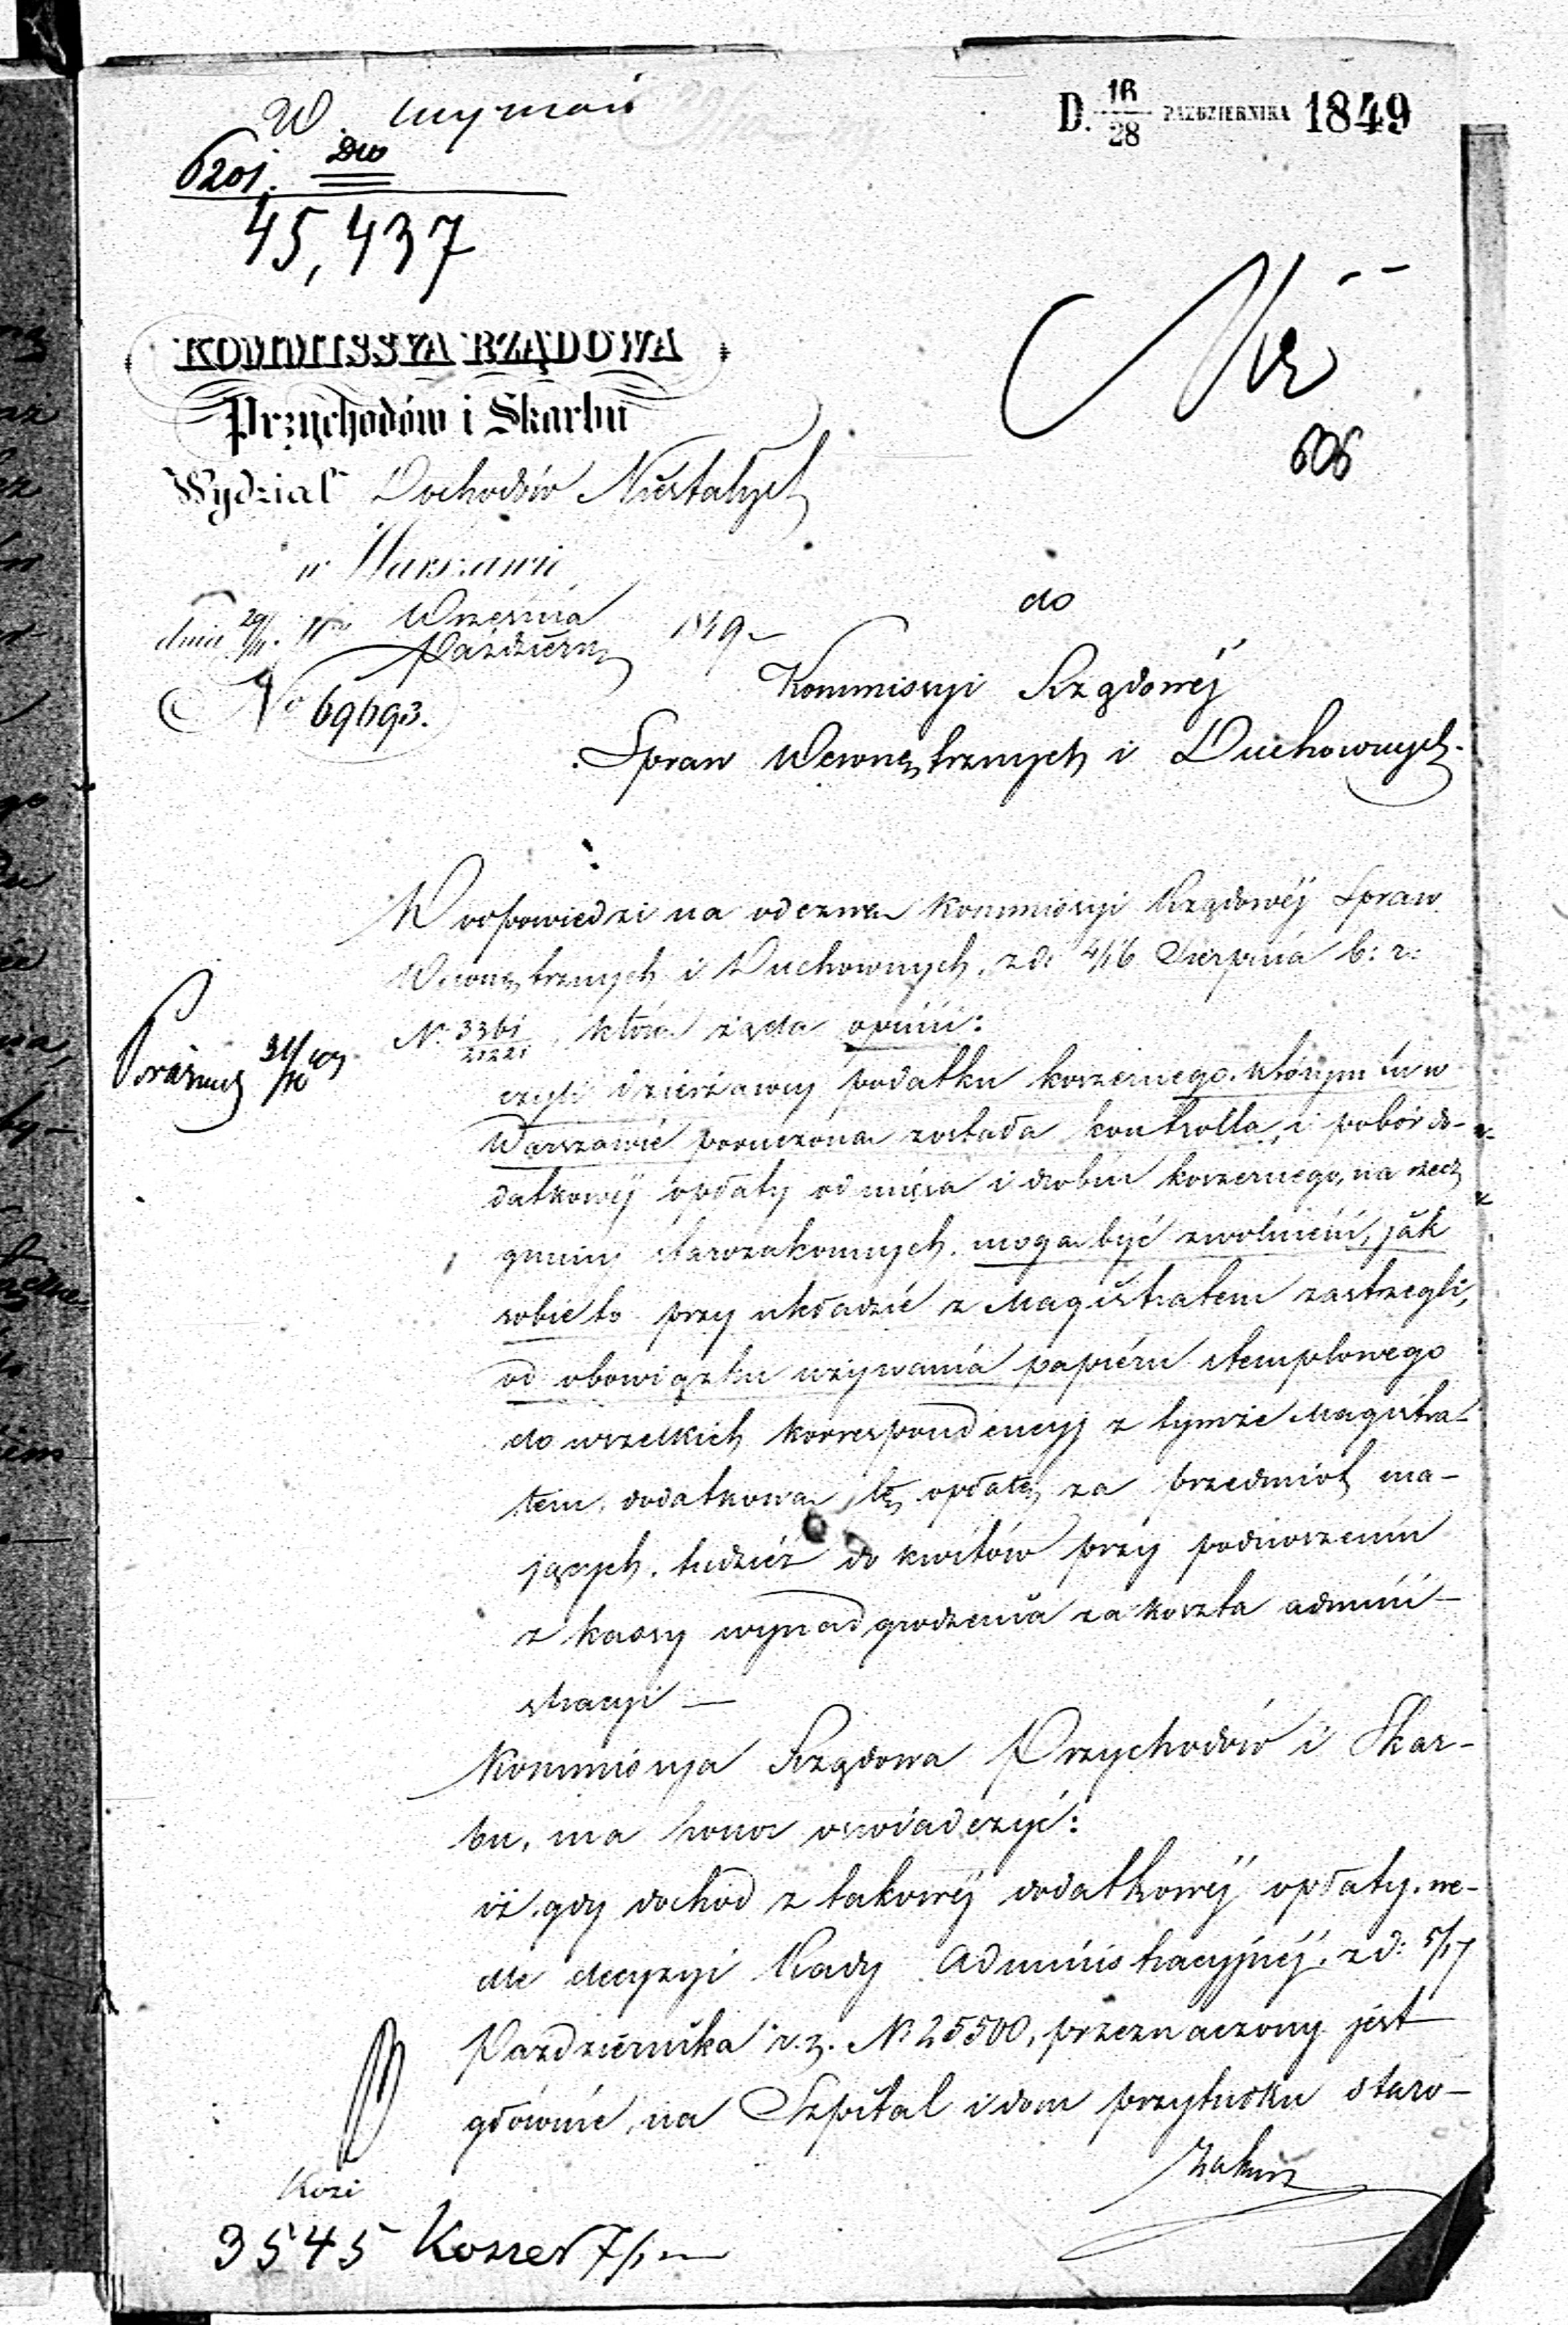 W.
6201.
45,437
D. 16/28 PAŹDZIERNIKA 1849
KOMMISSYA RZĄDOWA
Przychodów i Skarbu
Wydział Dochodów Niestałych
w Warszawie
dnia 29/11 Września
Października 1849
No 69693.
606
do
Kommissyi Rządowéj
Spraw Wewnętrznych i Duchownych.
W odpowiedzi na odezwę Kommissyi Rządowéj Spraw
Wewnętrznych i Duchownych, z d: 4/16 Sierpnia b: r:
No 3361/21221, którą żąda opinii:
czyli dzierżawcy podatku koszernego, którym tu w
Warszawie poruczona została kontrolla, i pobór do-
datkowéj opłaty od mięsa i drobiu koszernego, na rzecz
gminy starozakonnych, mogą być zwolnieni, jak
sobie to przy układzie z Magistratem zastrzegli,
od obowiązku używania papiéru stemplowego
do wszelkich korrespondencyj z tymże Magistra-
tem, dodatkową tę opłatę za przedmiot ma-
jących, tudzież do kwitów przy podnoszeniu
z kassy wynadgrodzenia za koszta admini-
stracyi —
Kommissya Rządowa Przychodów i Skar-
bu, ma honor oświadczyć:
iż gdy dochód z takowéj dodatkowéj opłaty, we-
dle decyzyi Rady Administracyjnéj, z d: 5/17
Października r. z. No 25500, przeznaczony jest
głównie, na Szpital i dom przytułku staro-
zakon
3545 Koszer